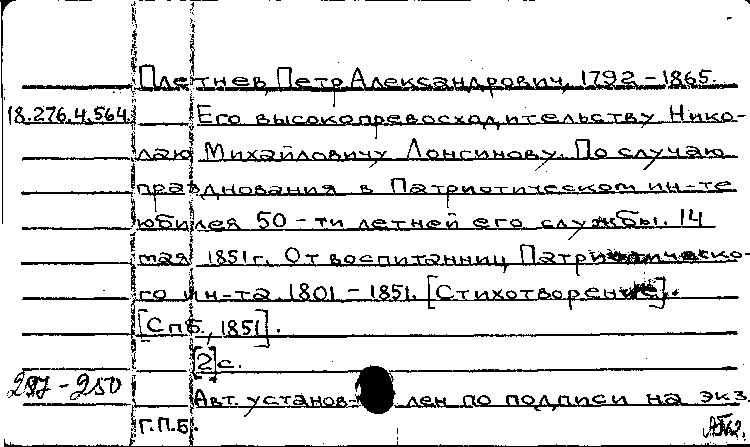 Плетнев, Петр Александрович, 1792-1865.
18.276.4.564
Его высокопревосходительству Нико-
лаю Михайловичу Лонгинову. По случаю
празднования в Патриотическом ин-те
юбилея 50-ти летней его службы. 14
мая 1851г. От воспитанниц Патриотическо-
го ин-та. 1801-1851. [Стихотворение].
[Спб., 1851].
[2]с.
Авт. установлен по подписи на экз.
Г.П.Б.